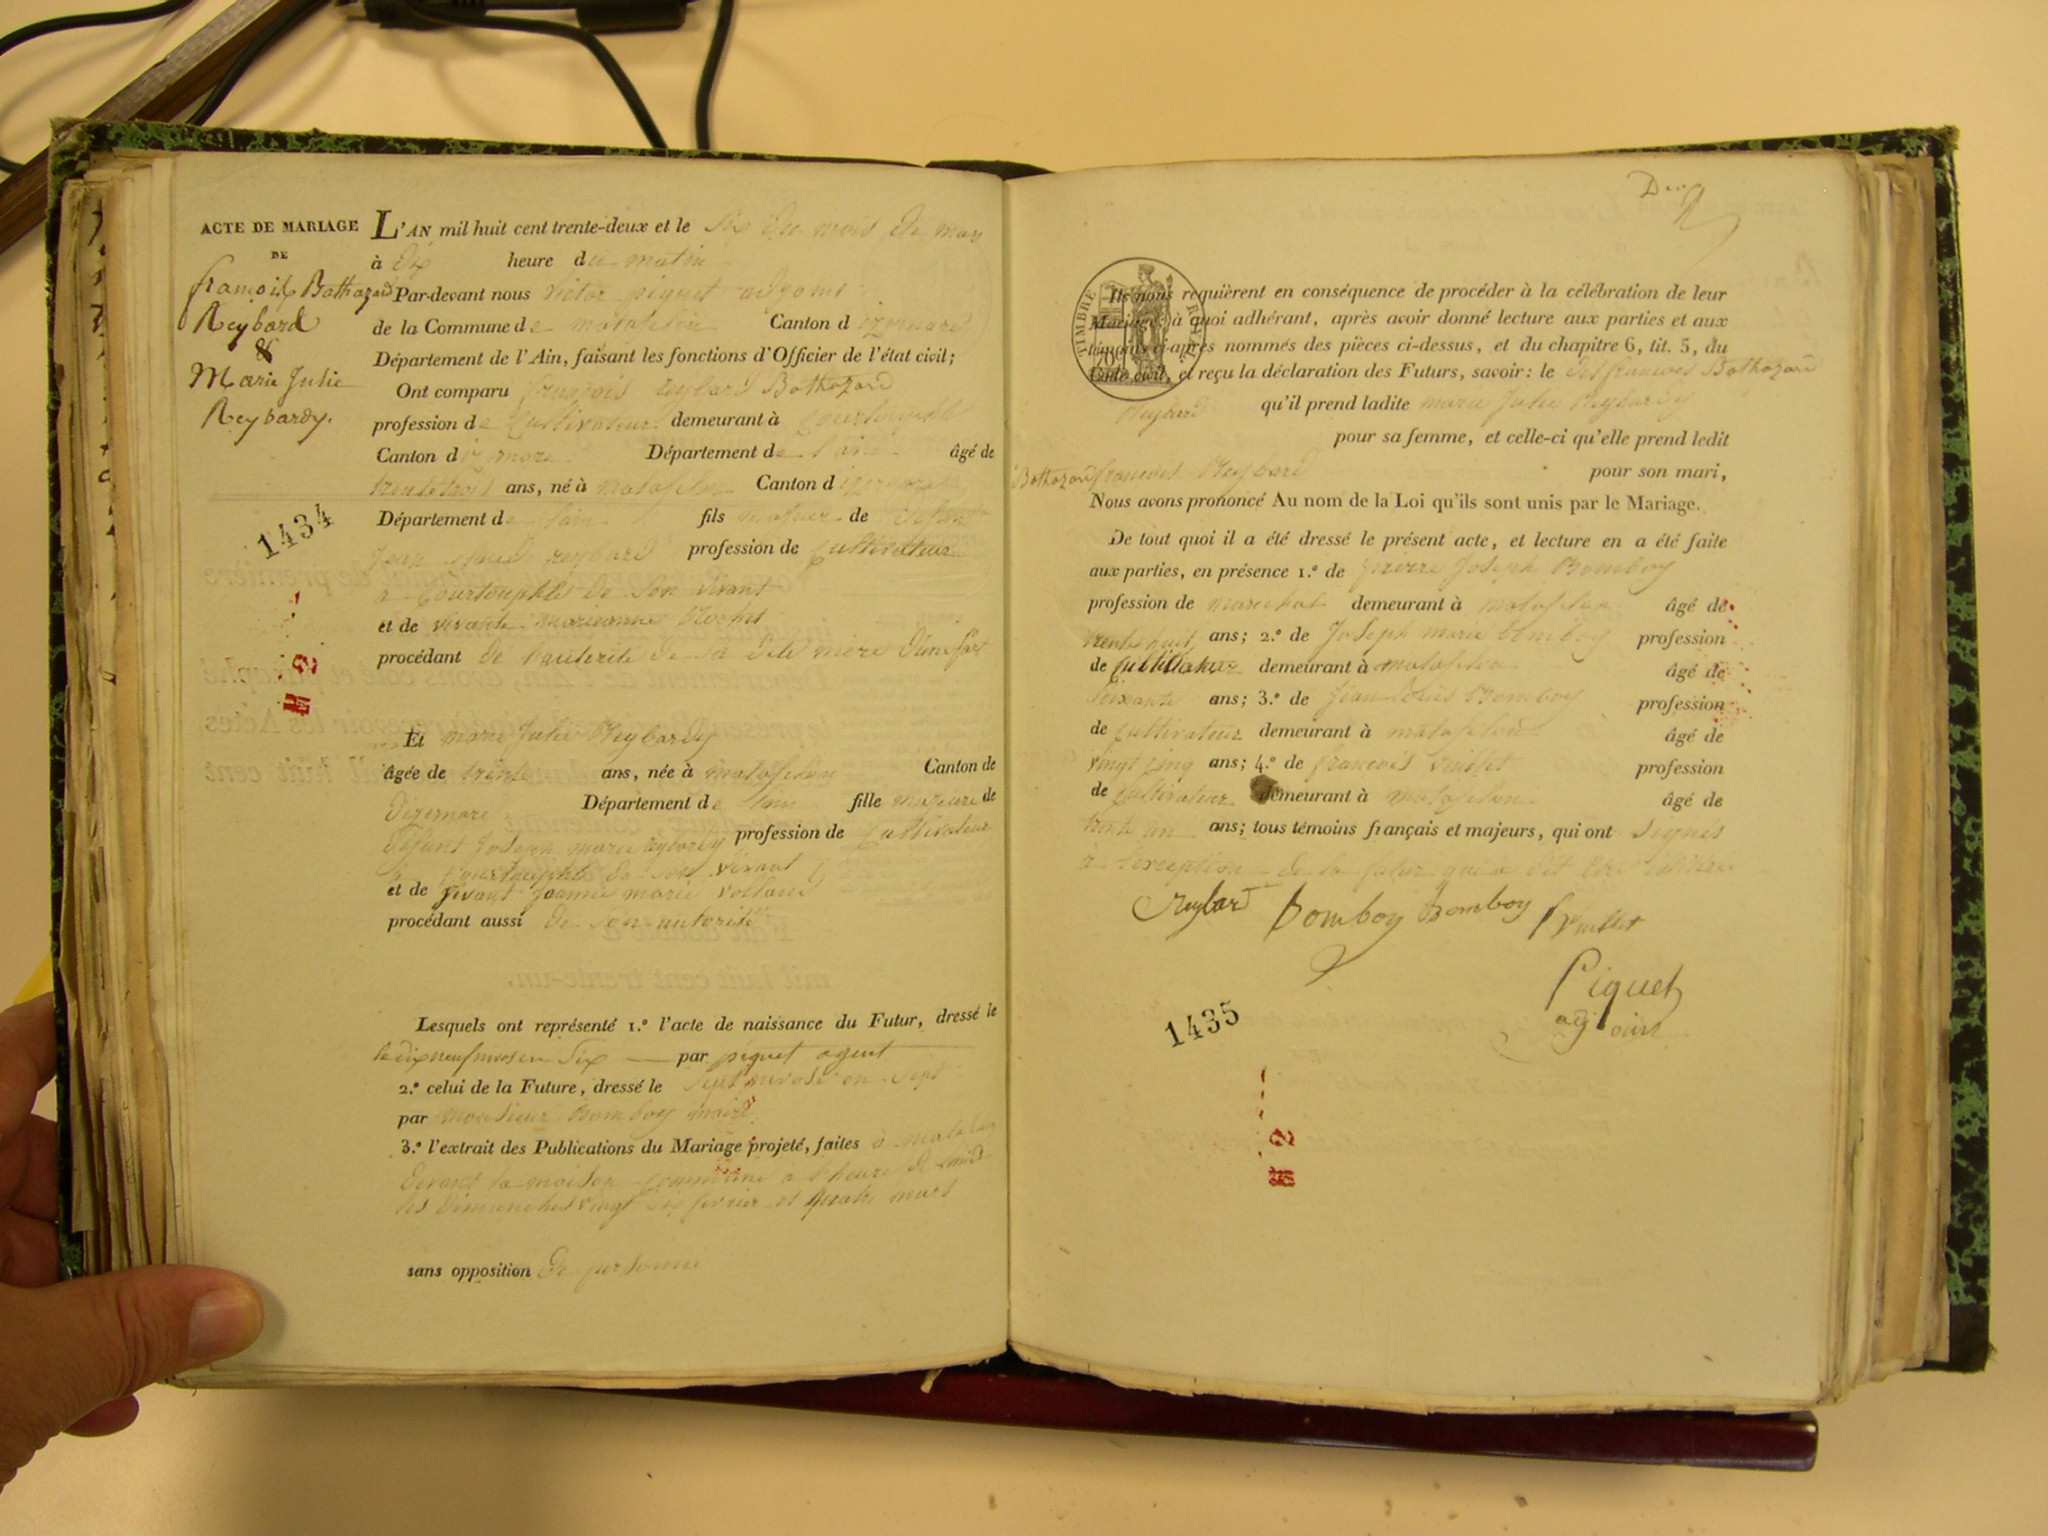 ACTE DE MARIAGE
DE
françois Bathazard
Reybard
&
Marie Julie
Reybardy.
1434
L'AN mil huit cent trente-deux et le six du mois de mars
à dix heure du matin
Par-devant nous victor piquet adjoint
de la Commune de matafelon Canton d'izernore
Département de l'Ain, faisant les fonctions d'Officier de l'état civil;
Ont comparu françois reybard Bathazard
profession de Cultivateur demeurant à
Canton d'izernore Département de l'ain âgé de
trente trois ans, né à matafelon Canton d'izernore
Département de l'ain fils majeur de défunt
reybard profession de Cultivateur
à de son vivant
et de vivante marieanne
procédant de l'autorité de sa dite mère d'une part
Et marie Julie Reybardy
âgée de trente ans, née à matafelon Canton de
Dizernore Département de l'ain fille majeure de
défunt Joseph marie reybardy profession de Cultivateur
à de son vivant
et de vivant Jeanne marie
procédant aussi de son autorité
Lesquels ont représenté 1.º l'acte de naissance du Futur, dressé le
le dix neuf nivose an Six par piquet agent
2.º celui de la Future, dressé le Sept nivose an Sept
par monsieur Bomboy maire
3.º l'extrait des Publications du Mariage projeté, faites à matafelon
devant la maison commune à l'heure de midi
les Dimanches vingt six fevrier et quatre mars
sans opposition de personne
TIMBRE ROYAL
Ils nous requièrent en conséquence de procéder à la célébration de leur
Mariage; à quoi adhérant, après avoir donné lecture aux parties et aux
témoins ci-après nommés des pièces ci-dessus, et du chapitre 6, tit. 5, du
Code civil, et reçu la déclaration des Futurs, savoir: le dit francois Bathazard
Reybard qu'il prend ladite marie Julie Reybardy
pour sa femme, et celle-ci qu'elle prend ledit
Bathazard francois Reybard pour son mari,
Nous avons prononcé Au nom de la Loi qu'ils sont unis par le Mariage.
De tout quoi il a été dressé le présent acte, et lecture en a été faite
aux parties, en présence 1.º de pierre Joseph Bomboy
profession de marechal demeurant à matafelon âgé de
trente huit ans; 2.º de Joseph marie Bomboy profession
de Cultivateur demeurant à matafelon âgé de
Soixante ans; 3.º de Jean Louis Bomboy profession
de Cultivateur demeurant à matafelon âgé de
vingt cinq ans; 4.º de francois Vuillet profession
de Cultivateur demeurant à matafelon âgé de
trente un ans; tous témoins français et majeurs, qui ont signés
à l'exception de la futur qui a dit être illitéré
Reybard Bomboy Bomboy f Vuillet
Piquet
adjoint
1435